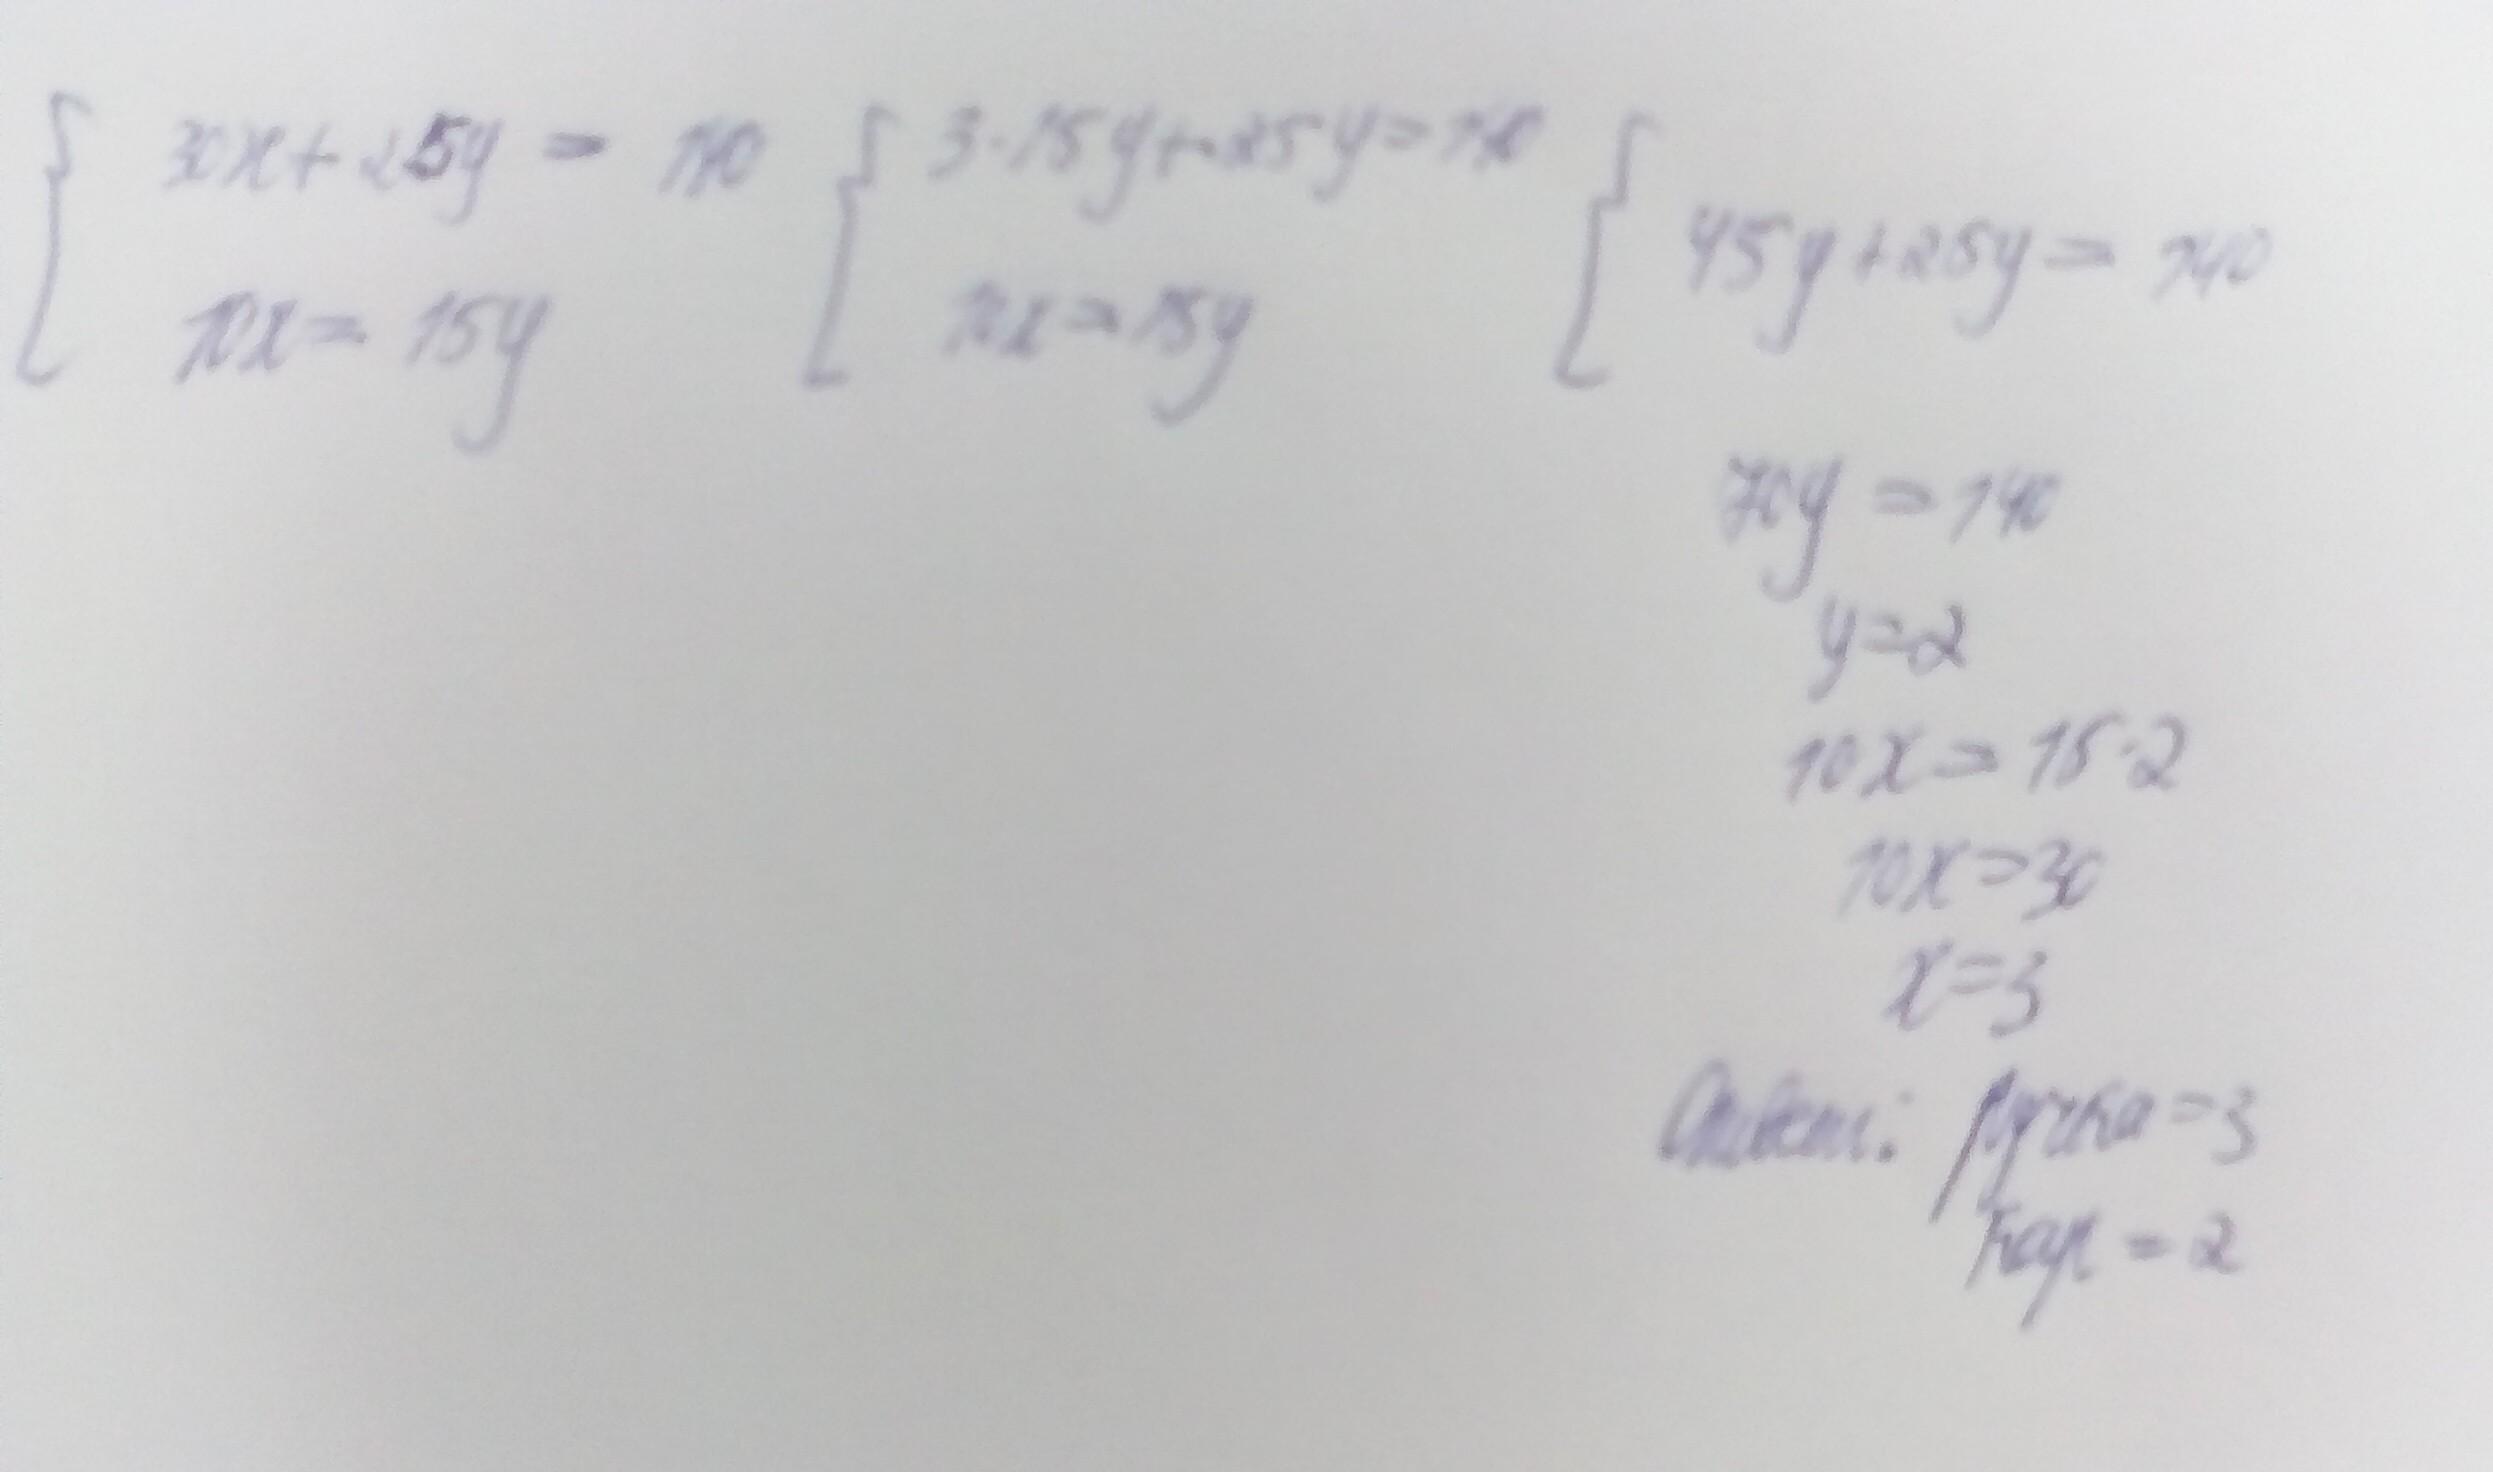 30x+25y = 140
10x = 15y
3·15y+25y=140
10x=15y
45y+25y= 140
70y = 140
y=2
10x= 15·2
10x=30
x=3
Ответ: ручка=3
кар = 2